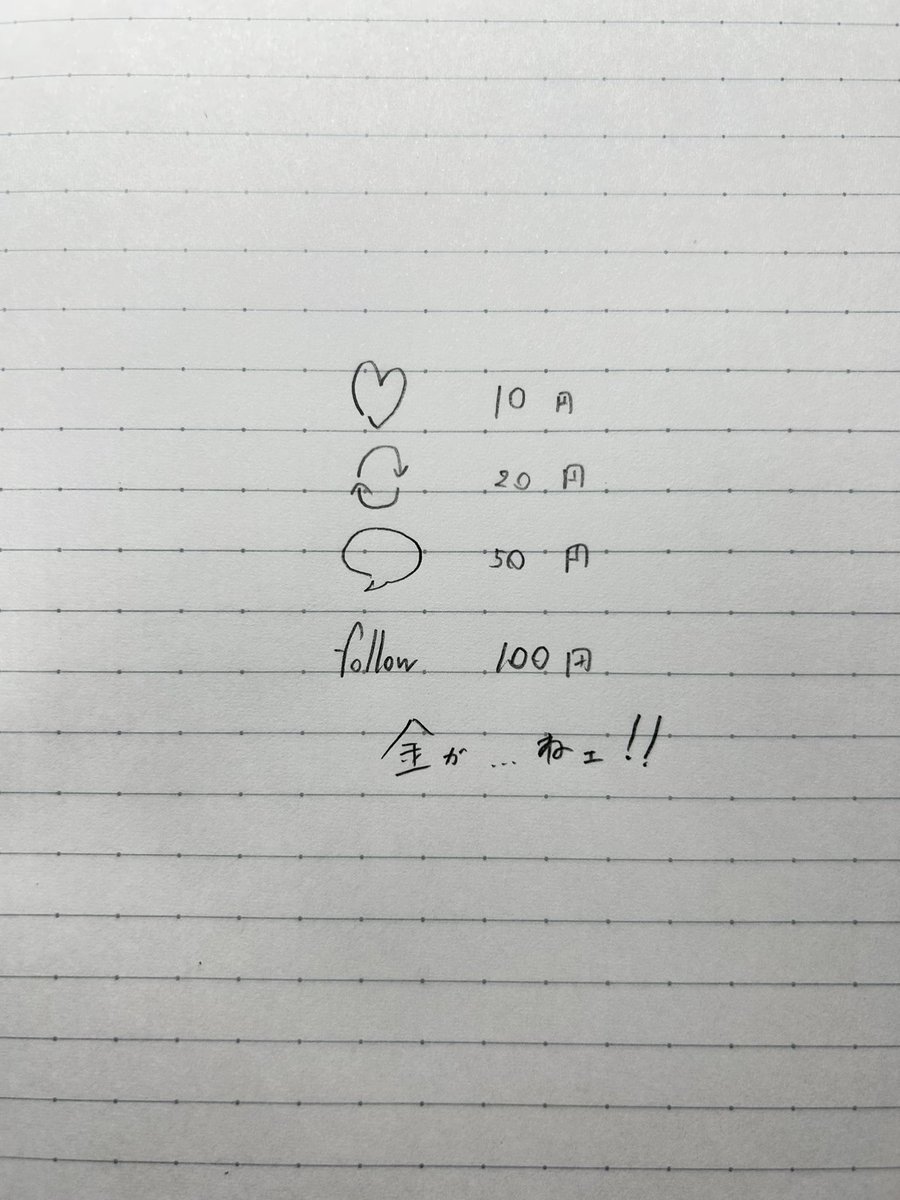 10円
20円
50円
follow 100円
金が…ねェ!!